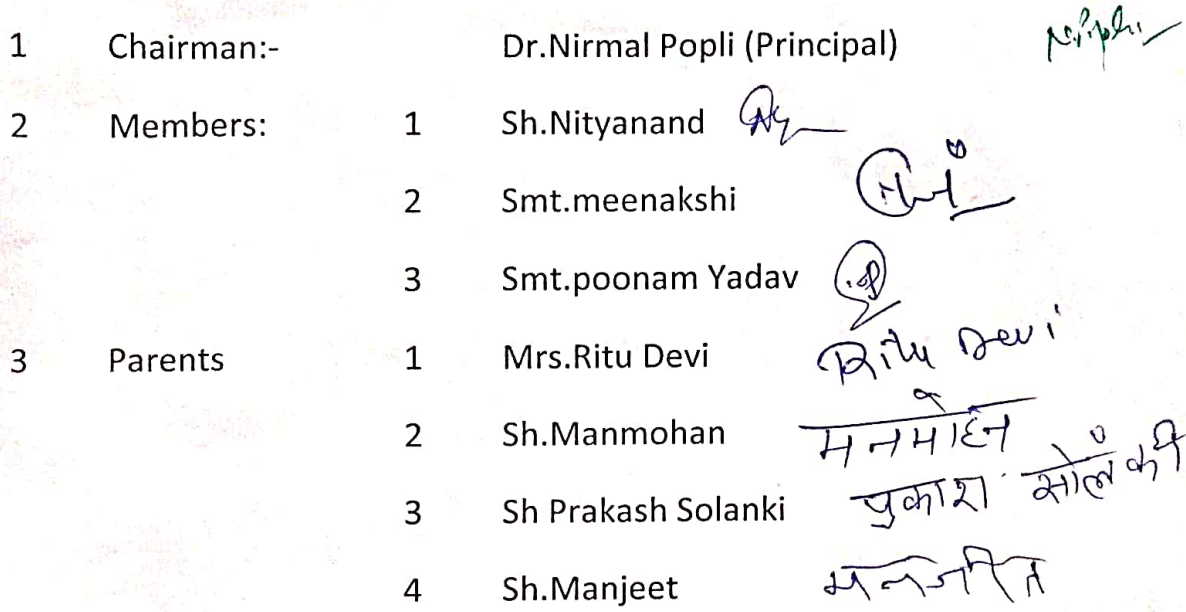 1 Chairman:- Dr.Nirmal Popli (Principal) N.Popli
2 Members: 1 Sh.Nityanand
2 Smt.meenakshi
3 Smt.poonam Yadav
3 Parents 1 Mrs.Ritu Devi Ritu Devi
2 Sh.Manmohan मनमोहन
3 Sh Prakash Solanki प्रकाश सोलंकी
4 Sh.Manjeet मनजीत